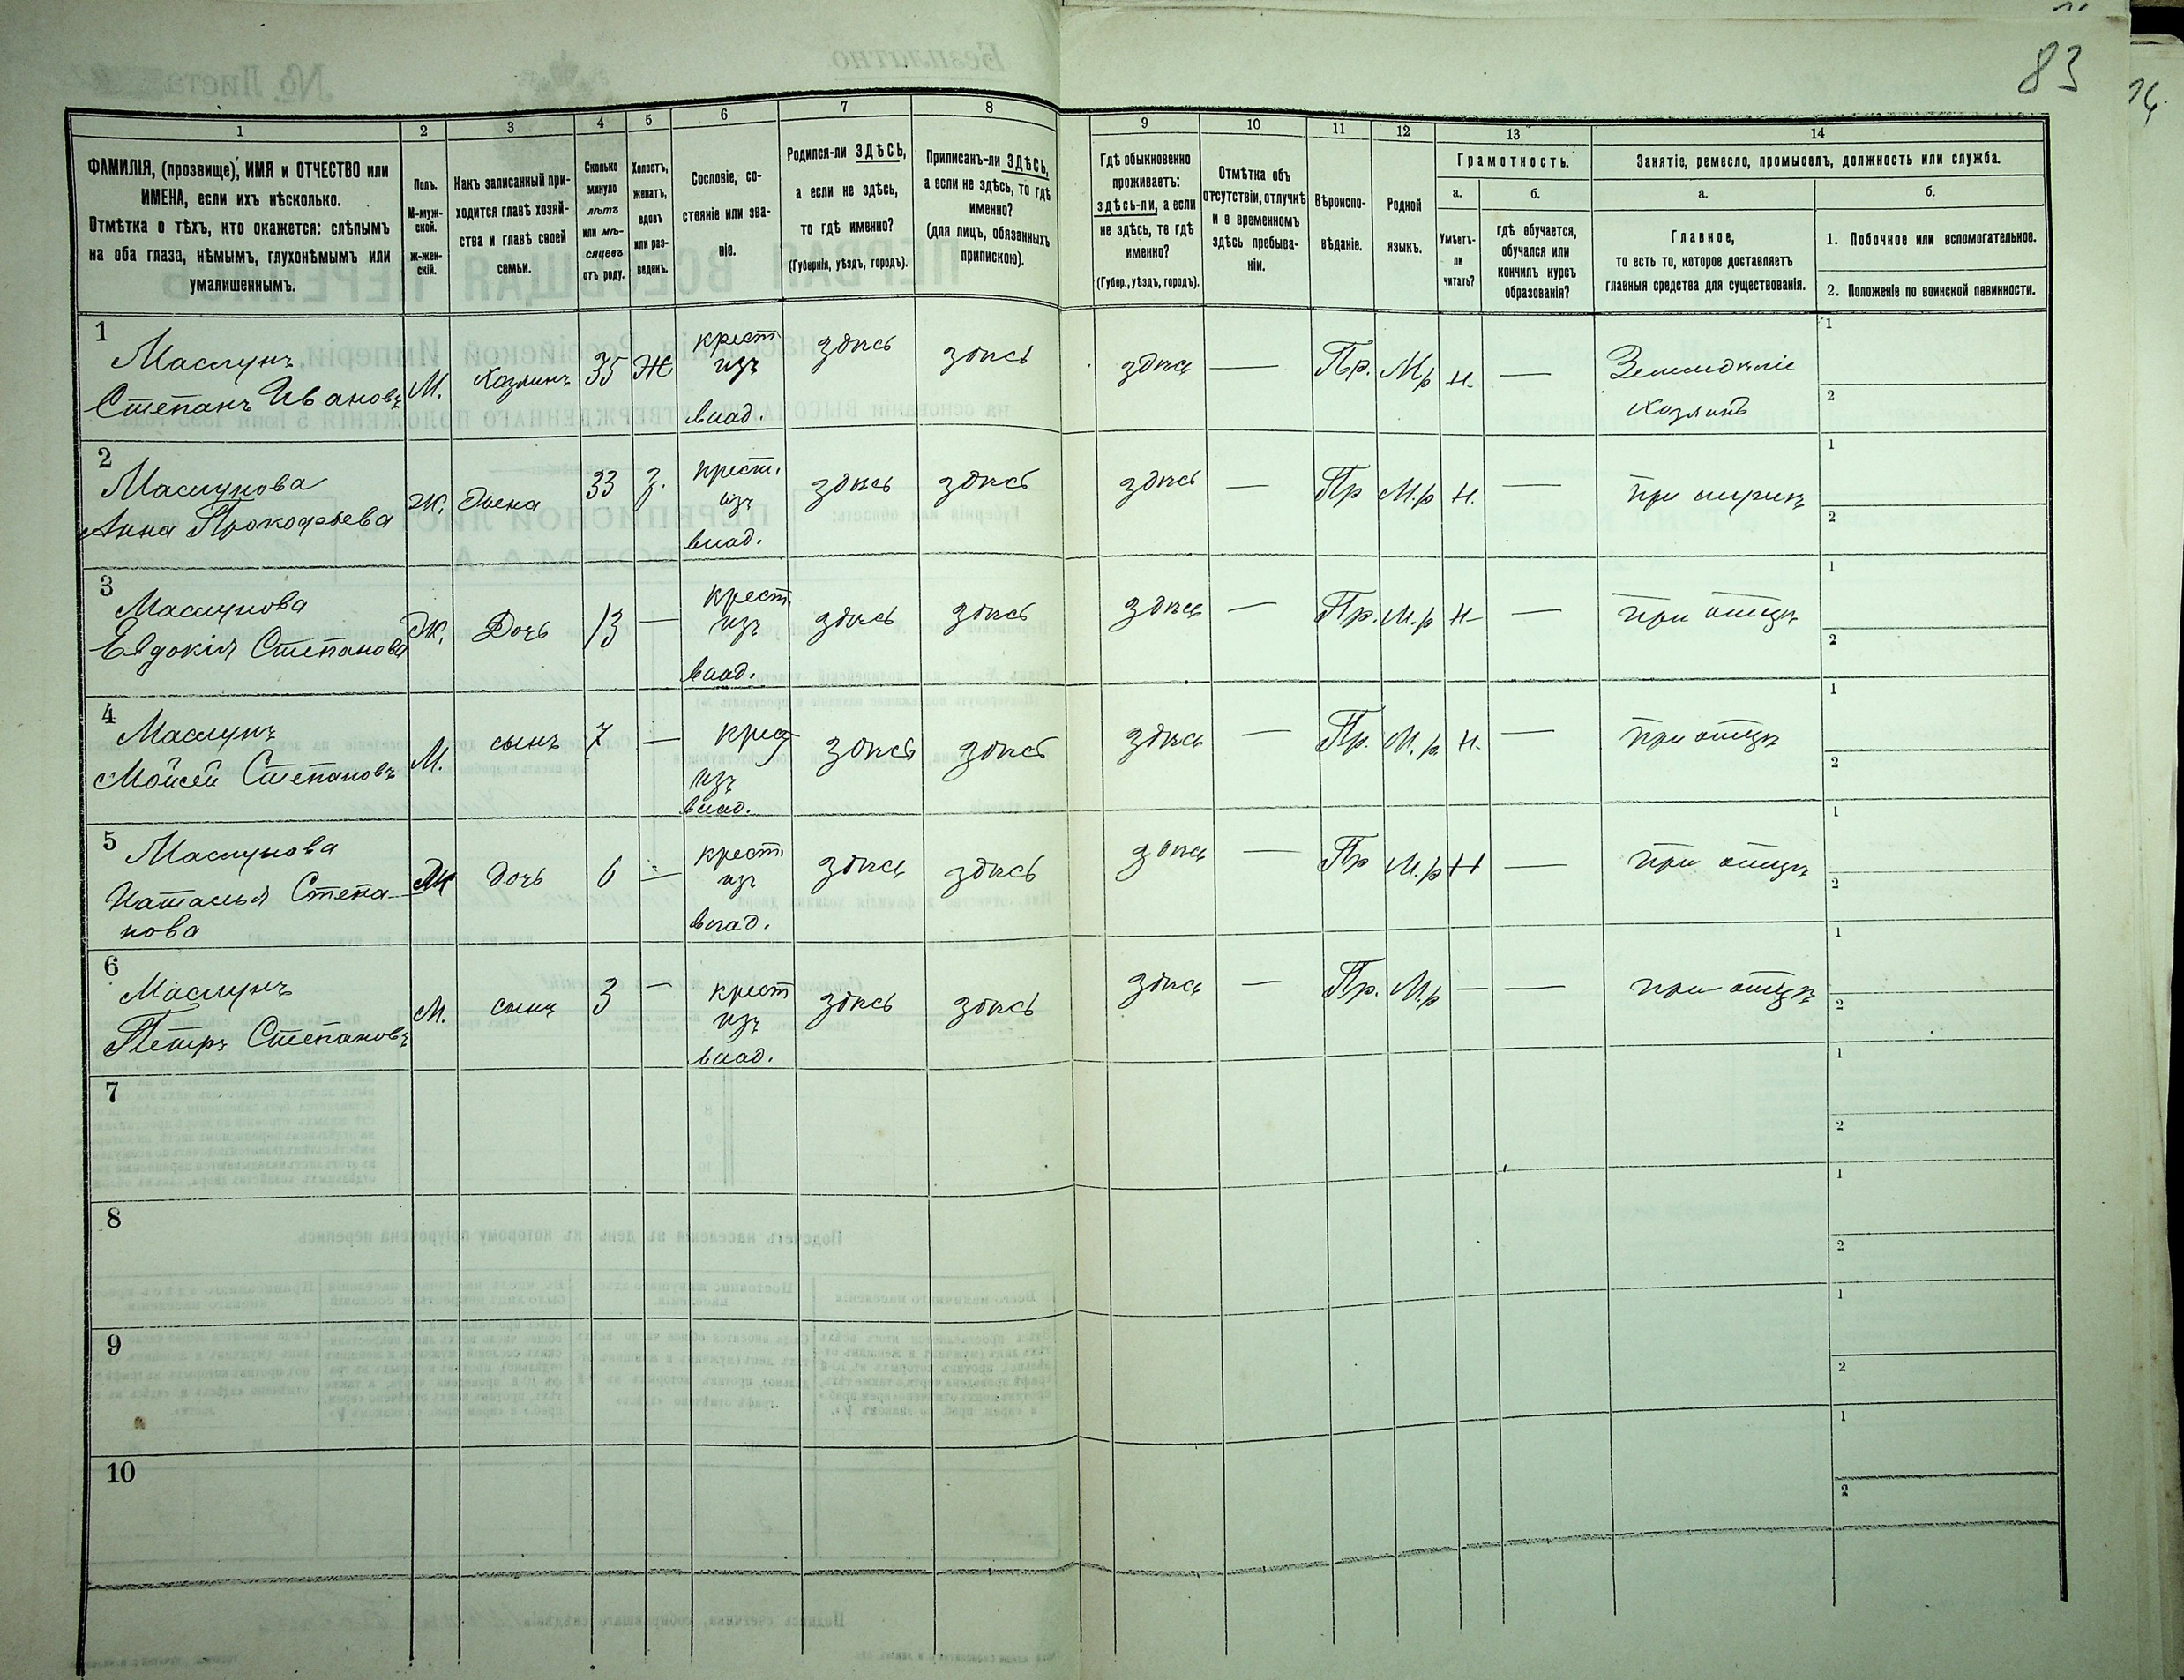 83
1
2
3
4
5
6
7
8
9
10
11
12
13
14
ФАМИЛІЯ, (прозвище), ИМЯ и ОТЧЕСТВО или
ИМЕНА, если ихъ нѣсколько.
Отмѣтка о тѣхъ, кто окажется: слѣпымъ
на оба глаза, нѣмымъ, глухонѣмымъ или
умалишеннымъ.
Полъ.
М-муж-
ской.
Ж-жен-
скій.
Какъ записанный при-
ходится главѣ хозяй-
ства и главѣ своей
семьи.
Сколько
минуло
лѣтъ
или мѣ-
сяцевъ
отъ роду.
Холостъ,
женатъ,
вдовъ
или раз-
веденъ.
Сословіе, со-
стояніе или зва-
ніе.
Родился-ли ЗДѢСЬ,
а если не здѣсь,
то гдѣ именно?
(Губернія, уѣздъ, городъ).
Приписанъ-ли ЗДѢСЬ,
а если не здѣсь, то гдѣ
именно?
(для лицъ, обязанныхъ
припискою).
Гдѣ обыкновенно
проживаетъ:
здѣсь-ли, а если
не здѣсь, то гдѣ
именно?
(Губер., уѣздъ, городъ).
Отмѣтка объ
отсутствіи, отлучкѣ
и о временномъ
здѣсь пребыва-
ніи.
Вѣроиспо-
вѣданіе.
Родной
языкъ.
Грамотность.
а.
Умѣетъ-
ли
читать?
б.
гдѣ обучается,
обучался или
кончилъ курсъ
образованія?
Занятіе, ремесло, промыселъ, должность или служба.
а.
Главное,
то есть то, которое доставляетъ
главныя средства для существованія.
б.
1. Побочное или вспомогательное.
2. Положеніе по воинской повинности.
1
Маслунъ
Степанъ Ивановъ
М.
Хозяинъ
35
Ж
крест
изъ
влад.
здѣсь
здѣсь
здѣсь
—
Пр.
М.р
н.
—
Земледѣліе
хозяинъ
1
2
2
Маслунова
Анна Прокофьева
Ж.
Жена
33
З.
крест.
изъ
влад.
здѣсь
здѣсь
здѣсь
—
Пр
М.р
н.
—
при мужѣ
1
2
3
Маслунова
Евдокія Степанова
Ж.
Дочь
13
—
крест.
изъ
влад.
здѣсь
здѣсь
здѣсь
—
Пр.
М.р
н
—
при отцѣ
1
2
4
Маслунъ
Мойсей Степановъ
М.
сынъ
7
—
крест
изъ
влад.
здѣсь
здѣсь
здѣсь
—
Пр.
М.р.
н.
—
при отцѣ
1
2
5
Маслунова
Наталья Степа-
нова
Ж
дочь
6
—
крест.
изъ
влад.
здѣсь
здѣсь
здѣсь
—
Пр
М.р
н
—
при отцѣ
1
2
6
Маслунъ
Петръ Степановъ
М.
сынъ
3
—
крест
изъ
влад.
здѣсь
здѣсь
здѣсь
—
Пр.
М.р
—
—
при отцѣ
1
2
7
1
2
8
1
2
9
1
2
10
1
2